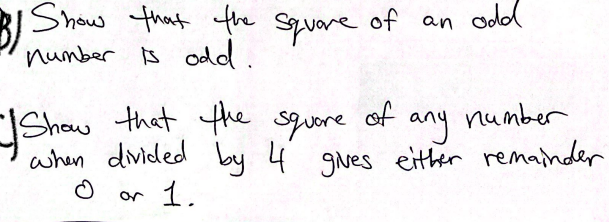 B) Show that the square of an odd
number is odd.
C) Show that the square of any number
when divided by 4 gives either remainder
0 or 1.